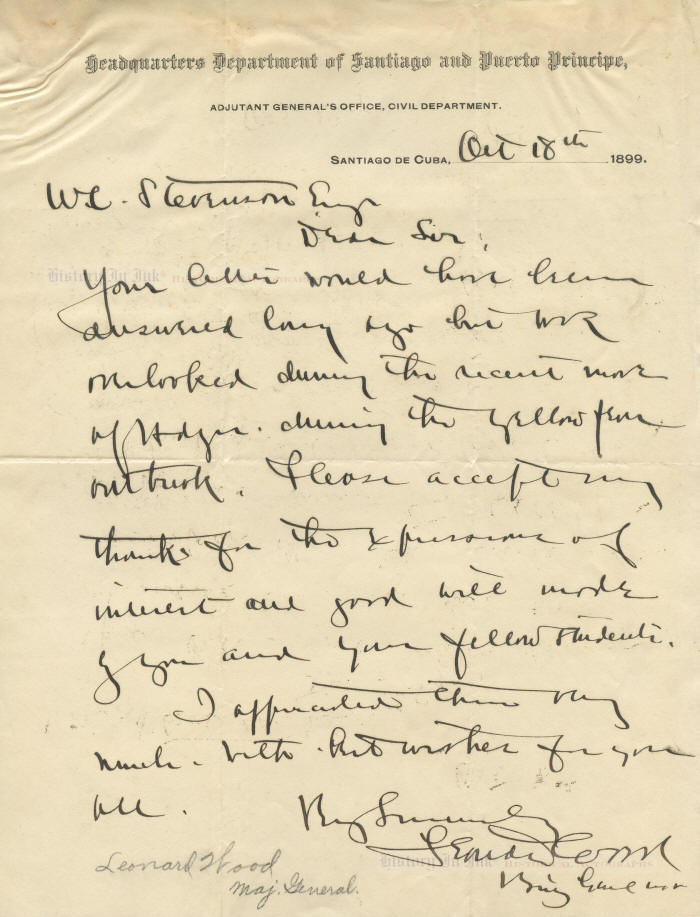 Headquarters Department of Santiago and Puerto Principe,
ADJUTANT GENERAL'S OFFICE, CIVIL DEPARTMENT.
SANTIAGO DE CUBA, Oct 18th 1899.
W.C. Stevenson Esqr
Dear Sir;
History In Ink
Your letter would have been
answered long ago but was
overlooked during the recent move
of Hdqrs. during the yellow fever
outbreak. Please accept my
thanks for the expressions of
interest and good will made
by you and your fellow students.
I appreciated them very
much. With best wishes for you
all.
Very Sincerely
Leonard Wood
History In Ink
Brig General
Leonard Wood
Maj. General.